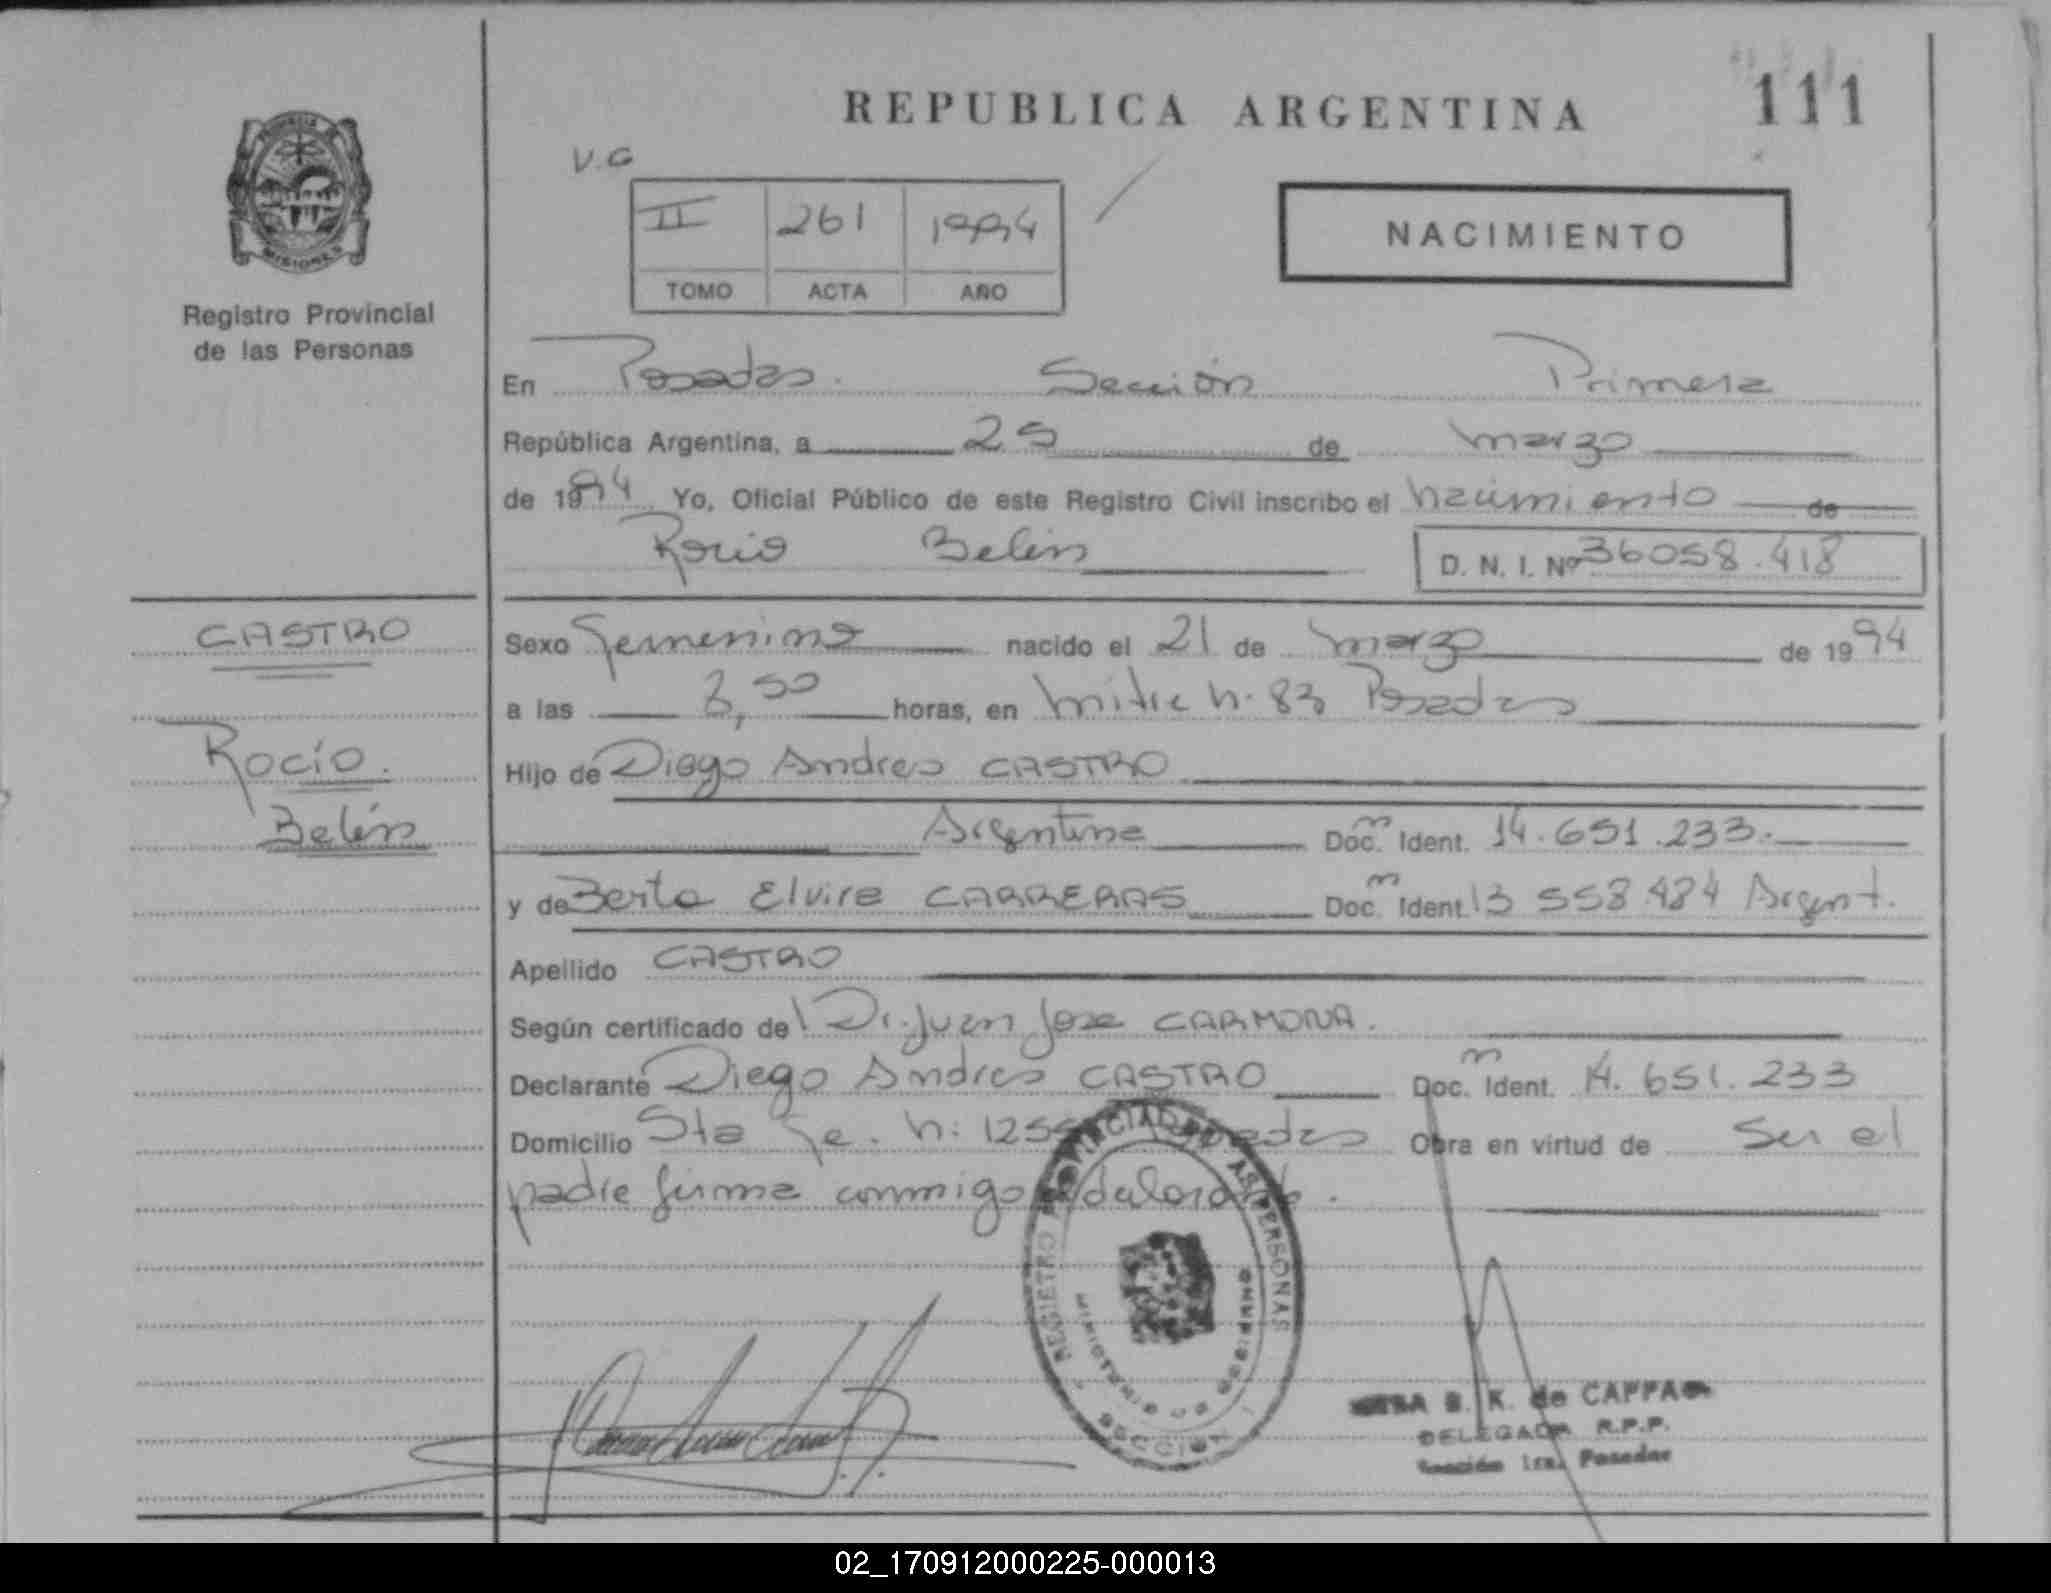 REPUBLICA ARGENTINA
111
V.G
II 261 1994
TOMO ACTA AÑO
NACIMIENTO
PROVINCIA DE
MISIONES
Registro Provincial
de las Personas
En Posadas. Sección Primera
República Argentina, a 25 de marzo
de 1994 Yo, Oficial Público de este Registro Civil inscribo el nacimiento de
Rocio Belén
D. N. I. Nº 36058.418
CASTRO
Rocío.
Belén
Sexo femenino nacido el 21 de marzo de 1994
a las 3,50 horas, en Mitre N. 83 Posadas
Hijo de Diego Andres CASTRO
Argentina Doc. m Ident. 14.651.233.
y de Berta Elvira CARRERAS Doc. m Ident. 13 558.484 Argent.
Apellido CASTRO
Según certificado de Dr. Juan Jose CARMONA.
Declarante Diego Andres CASTRO Doc. m Ident. 14.651.233
Domicilio Sta Fe. N: Posadas Obra en virtud de Ser el
padre firma conmigo
REGISTRO PROVINCIAL DE LAS PERSONAS
MINISTERIO DE GOBIERNO
SECCION 1
B. K. de
DELEGADA R.P.P.
Sección 1ra. Posadas
02_170912000225-000013